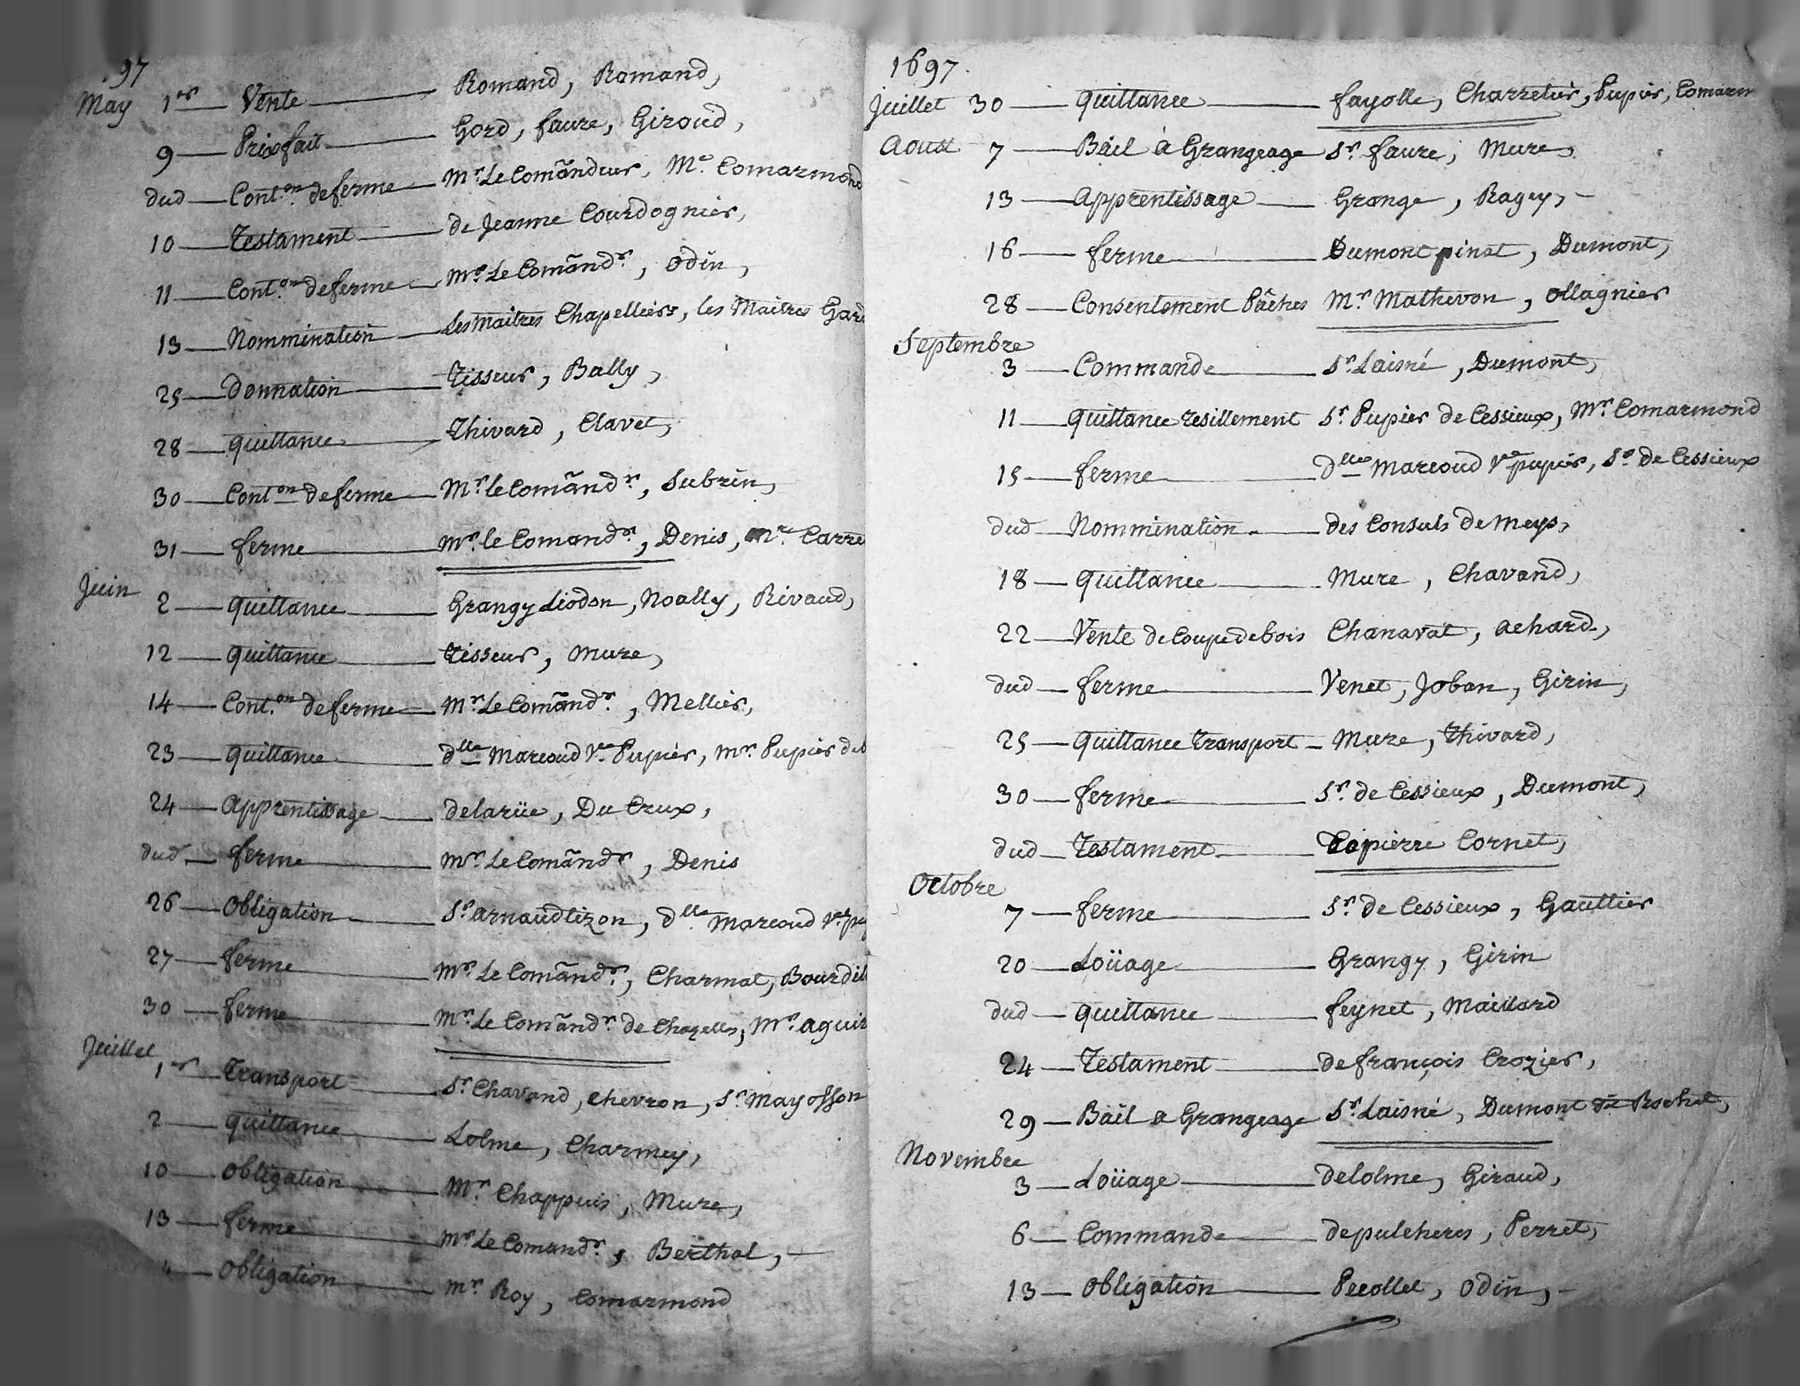 97
May 1er Vente Romand, Romand,
9 Prixfait Gord, faure, Giroud,
dud Cont.on de ferme Mr. Le Comãndeur, Me. Comarmond
10 Testament de Jeanne Courdognier,
11 Cont.on de ferme Mr. Le Comãndr., Odin,
13 Nommination Les Maitres Chapelliers, les Maitres Gard
25 Donnation Tisseur, Bally,
28 quittance Thivard, Clavet,
30 Cont.on de ferme Mr. le Comãndr., Subrin,
31 ferme Mr. le Comandr., Denis, Mre Carre
Juin
2 quittance Grangy Liodon, Noally, Rivaud,
12 quittance Tisseur, Mure,
14 Cont.on de ferme Mr. Le Comãndr., Mellier,
23 quittance dlle Marcoud Vve Pupier, Mr. Pupier de
24 apprentissage delarüe, Du Crux,
dud ferme Mr. Le Comãndr, Denis
26 Obligation Sr. arnaud tizon, dlle Marcoud Vve
27 ferme Mr. Le Comãndr., Charmat,
30 ferme Mr. Le Comãndr. de Chazelles, Mr.
Juillet
1er Transport Sr. Chavand, chevron, Sr. Mayosson
2 quittance Lolme, Charmey,
10 Obligation Mr. Chappuis, Mure,
13 ferme Mr. Le Comandr., Berthal,
Obligation Mr Roy, Comarmond
1697.
Juillet 30 quittance fayolle, Charretier, Pupier, Comarm
Aoust 7 Bâil à Grangeage Sr. faure, Mure,
13 apprentissage Grange, Ragey,
16 ferme Dumont pinat, Dumont,
28 Consentement Pâches Mr. Mathevon, Ollagnier
Septembre
3 Commande Sr. Laisné, Dumont,
11 quittance resillement Sr. Pupier de Cessieux, Mr. Comarmond
15 ferme dlle Marcoud Vve pupier, Sr. de Cessieux
dud Nommination des Consuls de Meys,
18 quittance Mure, Chavand,
22 Vente de Coupe de bois Chanavat, achard,
dud ferme Venet, Joban, Girin,
25 quittance Transport Mure, Thivard,
30 ferme Sr. de Cessieux, Dumont,
dud Testament pierre Cornet,
Octobre
7 ferme Sr. de Cessieux, Gaultier
20 Loüage Grangy, Girin
dud quittance feynet, Maillard
24 Testament de françois Crozier,
29 Bâil a Grangeage Sr. Laisné, Dumont
Novembre
3 Loüage delolme, Giraud,
6 Commande depulcheres, Perret,
13 Obligation Pecollet, Odin,